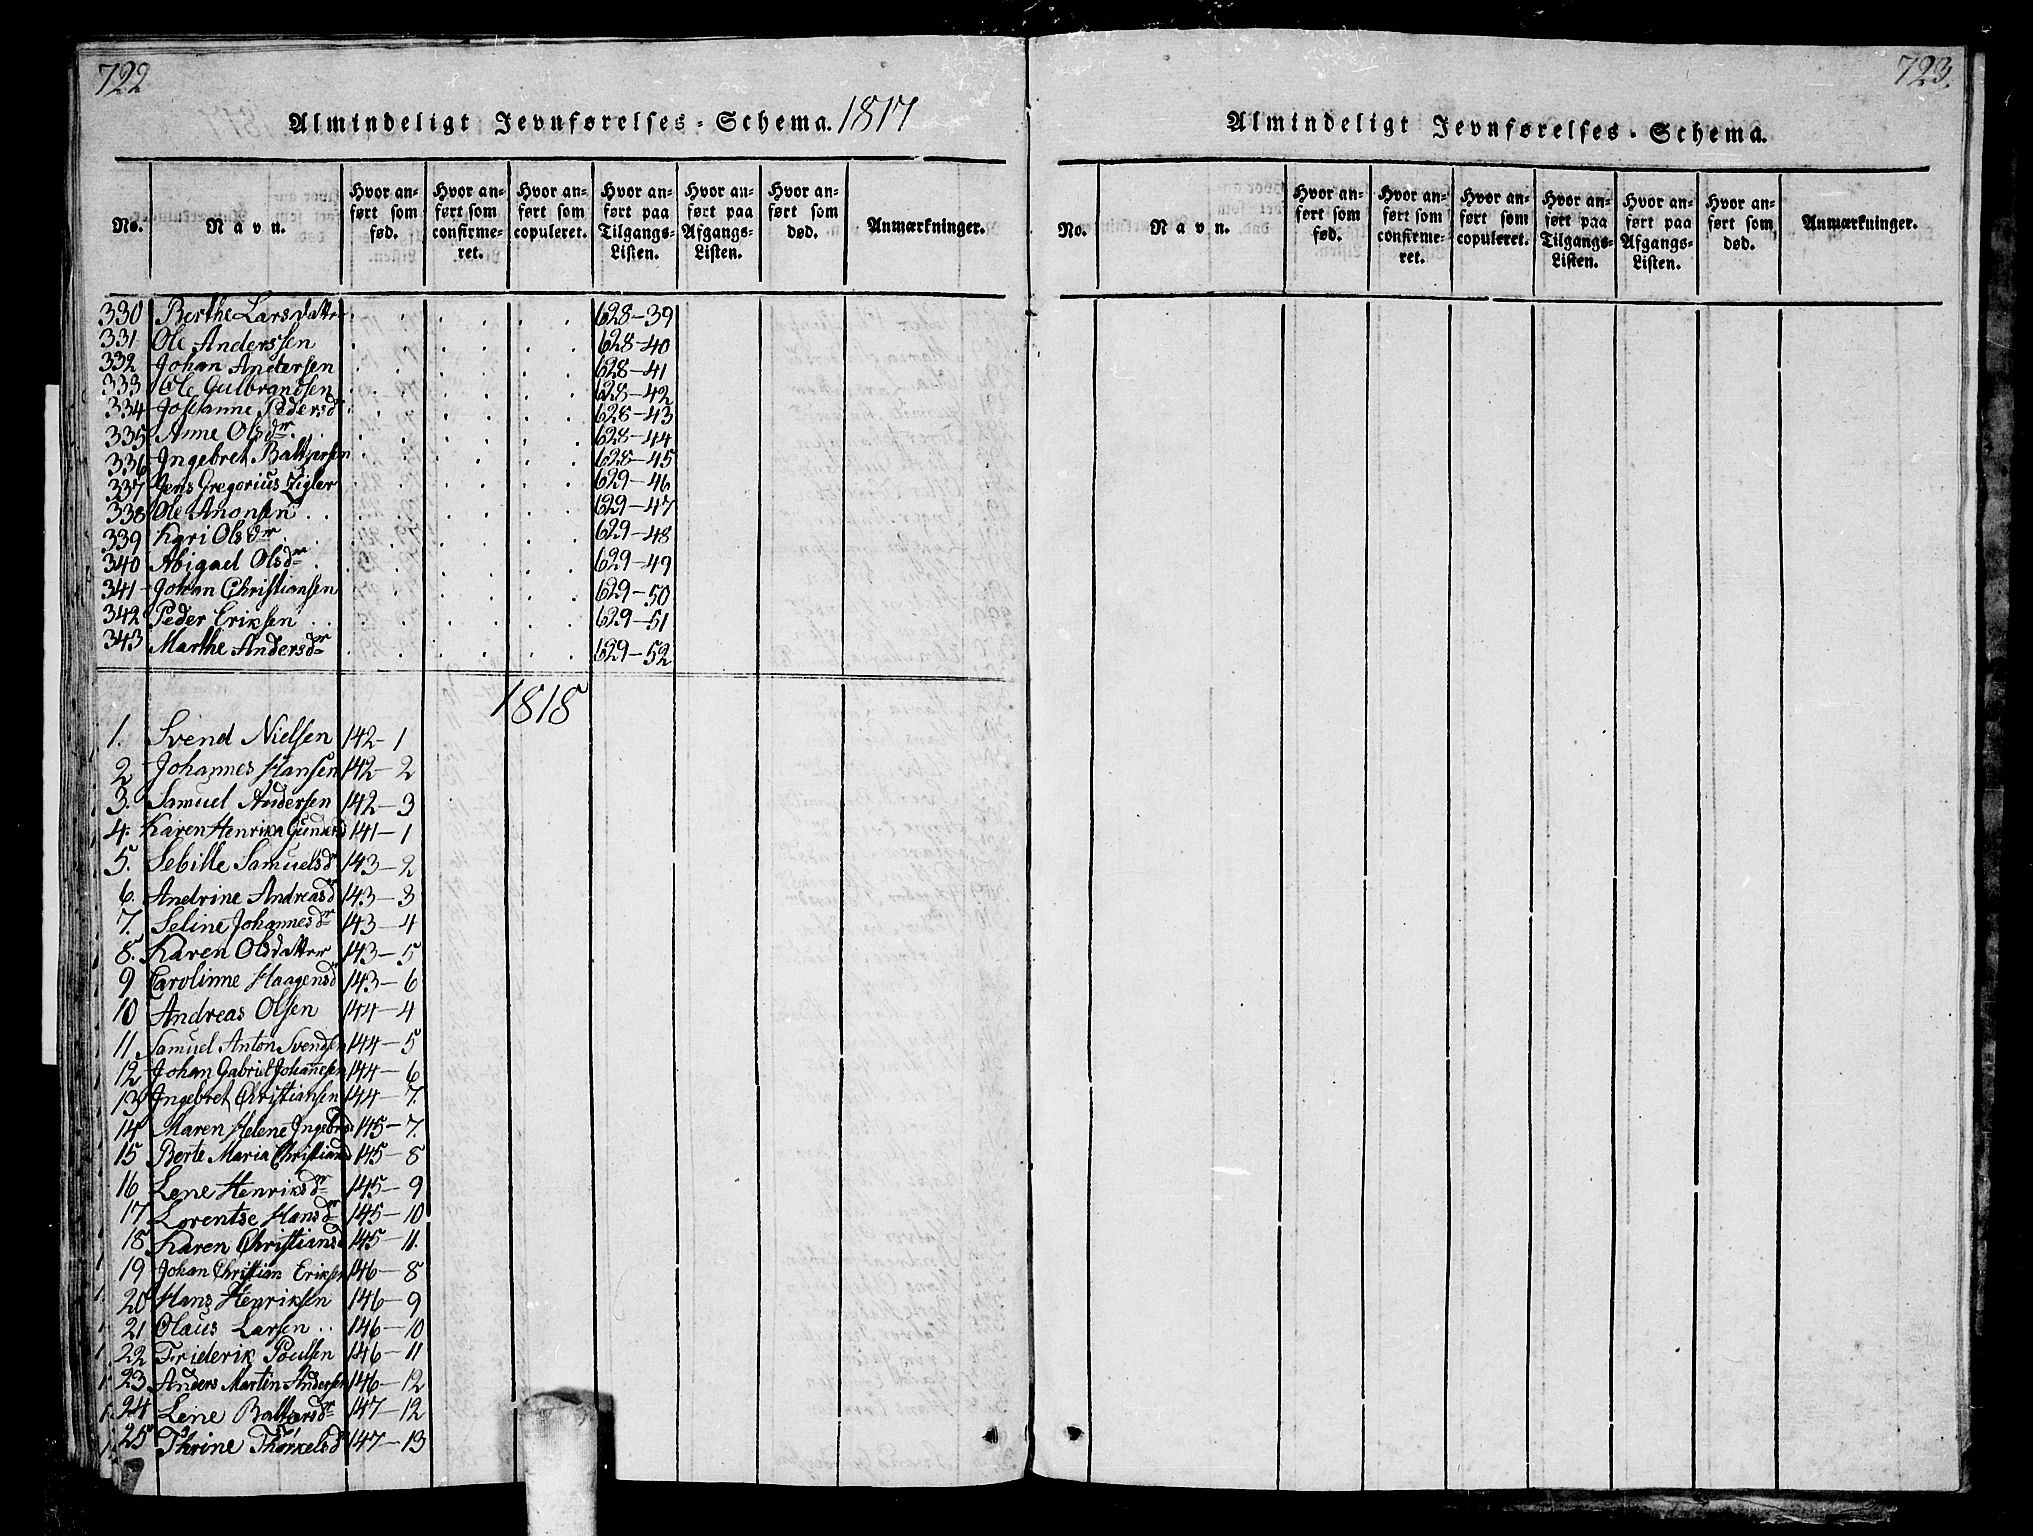 722
Almindeligt Jevnførelses-Schema. 1817
No. Navn. Hvor anført som fød. Hvor anført som confirmeret. Hvor anført som copuleret. Hvor anført paa Tilgangs-Listen. Hvor anført paa Afgangs-Listen. Hvor anført som død. Anmærkninger.
330 Berthe Larsdatter 628-39
331 Ole Anderssen 628-40
332 Johan Andersen 628-41
333 Ole Gulbrandsen 628-42
334 Johanne Pedersdr 628-43
335 Anne Olsdr 628-44
336 Ingebret Baltzersen 628-45
337 Jens Gregorius Zigler 629-46
338 Ole Anonsen 629-47
339 Kari Olsdr 629-48
340 Abigael Olsdr 629-49
341 Johan Christiansen 629-50
342 Peder Eriksen 629-51
343 Marthe Andersdr 629-52
1818
1. Svend Nielsen 142-1
2 Johannes Hansen 142-2
3. Samuel Andersen 142-3
4. Karen Henrika 141-1
5. Sebille Samuelsdr 143-2
6. Andrine Andreasd 143-3
7. Seline Johannesdr 143-4
8. Karen Olsdatter 143-5
9 Carolinne Haagensd 143-6
10 Andreas Olsen 144-4
11 Samuel Anton Svendsen 144-5
12 Johan Gabriel Johannesen 144-6
13 Ingebret Christiansen 144-7.
14 Maren Helene Ingebrsd 145-7.
15 Berte Maria Christiansd 145-8
16 Lene Henriksdr 145-9
17 Lorentse Hansdr 145-10
18 Karen Christiansd 145-11.
19 Johan Christian Eriksen 146-8
20 Hans Henriksen 146-9
21 Olaus Larsen 146-10
22 Friderik Poulsen 146-11
23 Anders Martin Andersen 146-12
24 Lene Baltzersdr 147-12
25 Thrine Thorkelsd 147-13
723.
Almindeligt Jevnførelses-Schema.
No. Navn. Hvor anført som fød. Hvor anført som confirmeret. Hvor anført som copuleret. Hvor anført paa Tilgangs-Listen. Hvor anført paa Afgangs-Listen. Hvor anført som død. Anmærkninger.